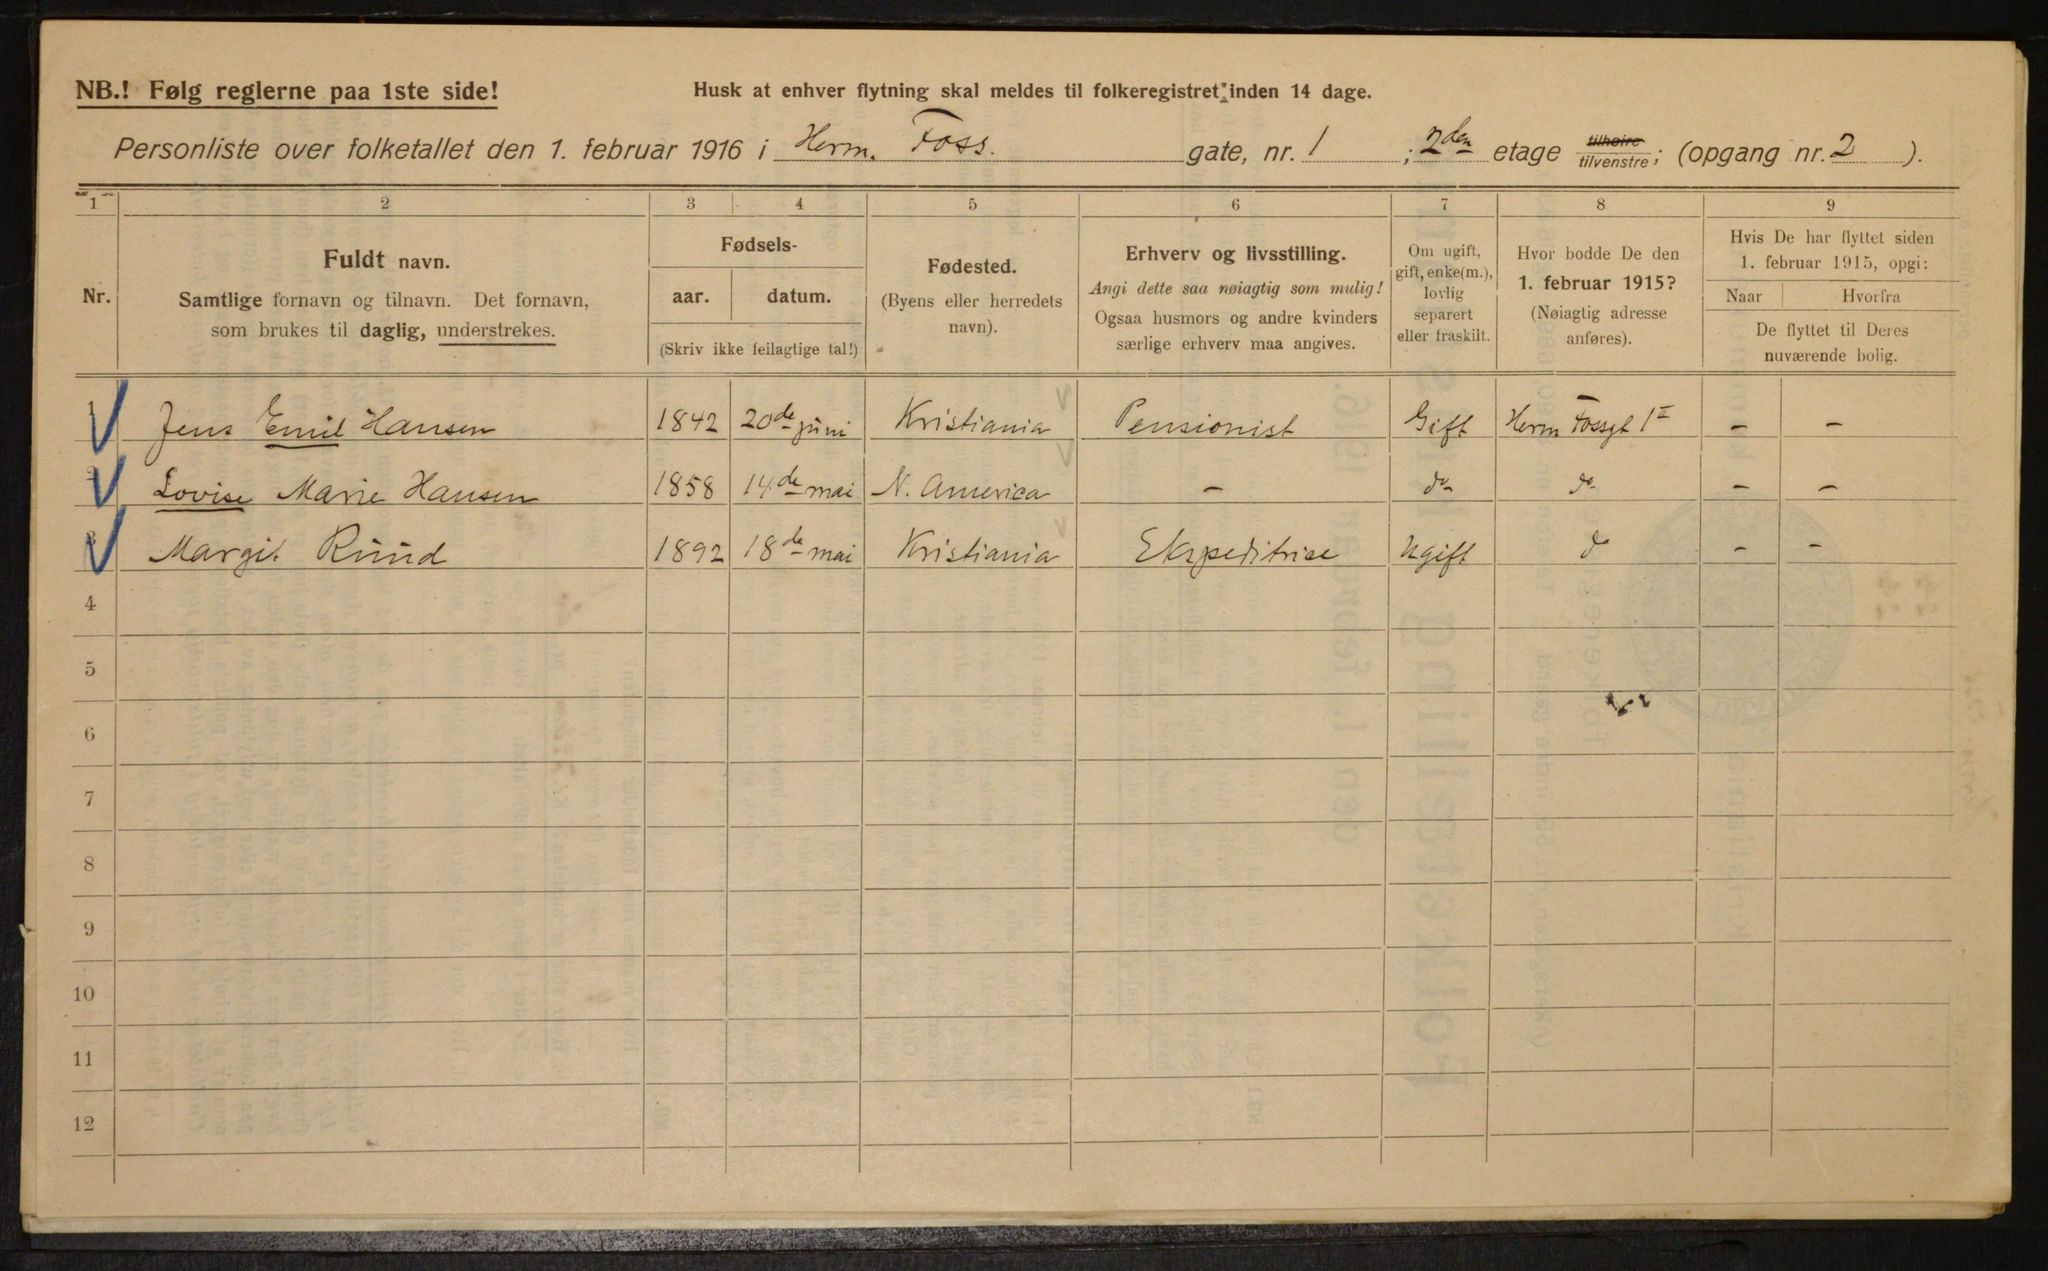 NB.! Følg reglerne paa 1ste side!
Husk at enhver flytning skal meldes til folkeregistret inden 14 dage.
Personliste over folketallet den 1. februar 1916 i Herm. Foss. gate, nr. 1 ; 2den etage tilhøire tilvenstre; (opgang nr. 2 ).
1 2 3 4 5 6 7 8 9
Nr.
Fuldt navn.
Samtlige fornavn og tilnavn. Det fornavn,
som brukes til daglig, understrekes.
Fødsels-
aar. datum.
(Skriv ikke feilagtige tal!)
Fødested.
(Byens eller herredets
navn).
Erhverv og livsstilling.
Angi dette saa nøiagtig som mulig!
Ogsaa husmors og andre kvinders
særlige erhverv maa angives.
Om ugift,
gift, enke(m.),
lovlig
separert
eller fraskilt.
Hvor bodde De den
1. februar 1915?
(Nøiagtig adresse
anføres).
Hvis De har flyttet siden
1. februar 1915, opgi:
Naar Hvorfra
De flyttet til Deres
nuværende bolig.
1 Jens Emil Hansen 1842 20de juni Kristiania Pensionist Gift Herm Fossgt 1 II – –
2 Lovise Marie Hansen 1858 14de mai N. America – do do – –
3 Margit Ruud 1892 18de mai Kristiania Ekspeditrise Ugift do – –
4
5
6
7
8
9
10
11
12